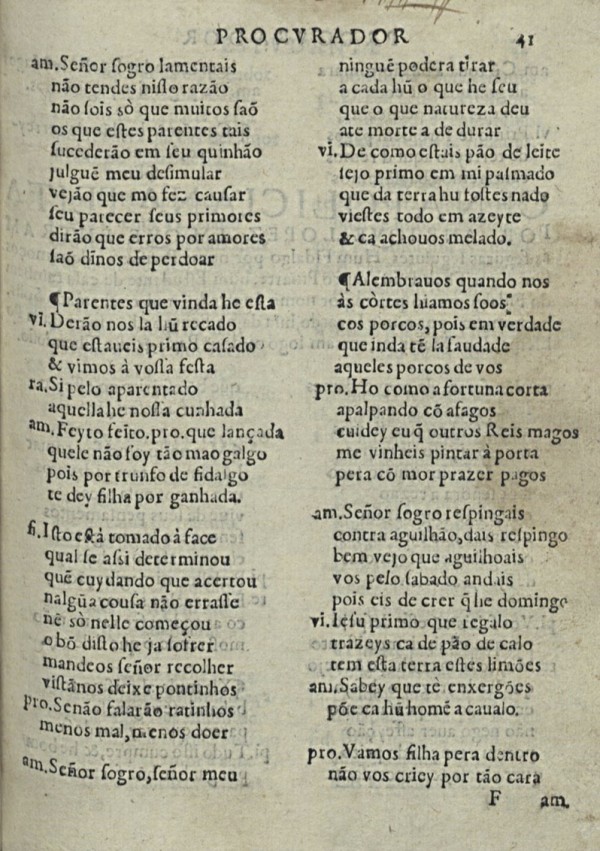 PROCVRADOR 41
am. Señor sogro lamentais
não tendes nisto razão
não sois sò que muitos saõ
os que estes parentes tais
sucederão em seu quinhão
julguẽ meu desimular
vejão que mo fez causar
seu parecer seus primores
dirão que erros por amores
saõ dinos de perdoar
¶Parentes que vinda he esta
vi. Derão nos la hũ recado
que estaueis primo casado
& vimos à vossa festa
ra. Si pelo aparentado
aquella he nossa cunhada
am. Feyto feito. pro. que lançada
quele não foy tão mao galgo
pois por trunfo de fidalgo
te dey filha por ganhada.
fi. Isto está tomado à face
qual se assi determinou
quẽ cuydando que acertou
nalgũa cousa não errasse
nẽ sò nelle começou
o bõ disto he ja sofrer
mandeos señor recolher
vistãnos deixe pontinhos
pro. Senão falarão ratinhos
menos mal, menos doer
am. Señor sogro, señor meu
ninguẽ podera tirar
a cada hũ o que he seu
que o que natureza deu
ate morte a de durar
vi. De como estais pão de leite
sejo primo em mi pasmado
que da terra hu fostes nado
viestes todo em azeyte
& ca achouos melado.
¶Alembrauos quando nos
às còrtes hiamos soos
cos porcos, pois em verdade
que inda tẽ la saudade
aqueles porcos de vos
pro. Ho como a fortuna corta
apalpando cõ afagos
cuidey eu q̃ outros Reis magos
me vinheis pintar à porta
pera cõ mor prazer pagos
am. Señor sogro respingais
contra aguilhão, dais respingo
bem vejo que aguilhoais
vos pelo sabado andais
pois eis de crer q̃ he domingo
vi. Iesu primo que regalo
trazeys ca de pão de calo
tem esta terra estes limões
am. Sabey que tẽ enxergões
põe ca hũ homẽ a caualo.
pro. Vamos filha pera dentro
não vos criey por tão cara
F am.